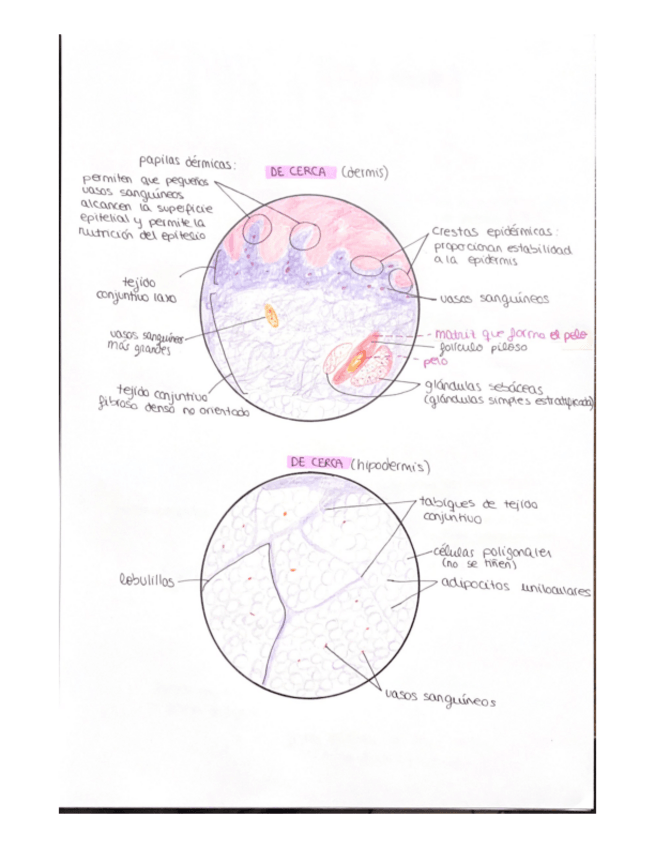 papilas dérmicas:
permiten que pequeños
vasos sanguíneos
alcancen la superficie
epitelial y permite la
nutrición del epitelio
DE CERCA (dermis)
crestas epidérmicas:
proporcionan estabilidad
a la epidermis
tejido
conjuntivo laxo
vasos sanguíneos
vasos sanguíneos
más grandes
matriz que forma el pelo
folículo piloso
pelo
tejido conjuntivo
fibroso denso no orientado
glándulas sebáceas
(glándulas simples estratificada)
DE CERCA (hipodermis)
tabiques de tejido
conjuntivo
células poligonales
(no se tiñen)
lobulillos
adipocitos uniloculares
vasos sanguíneos